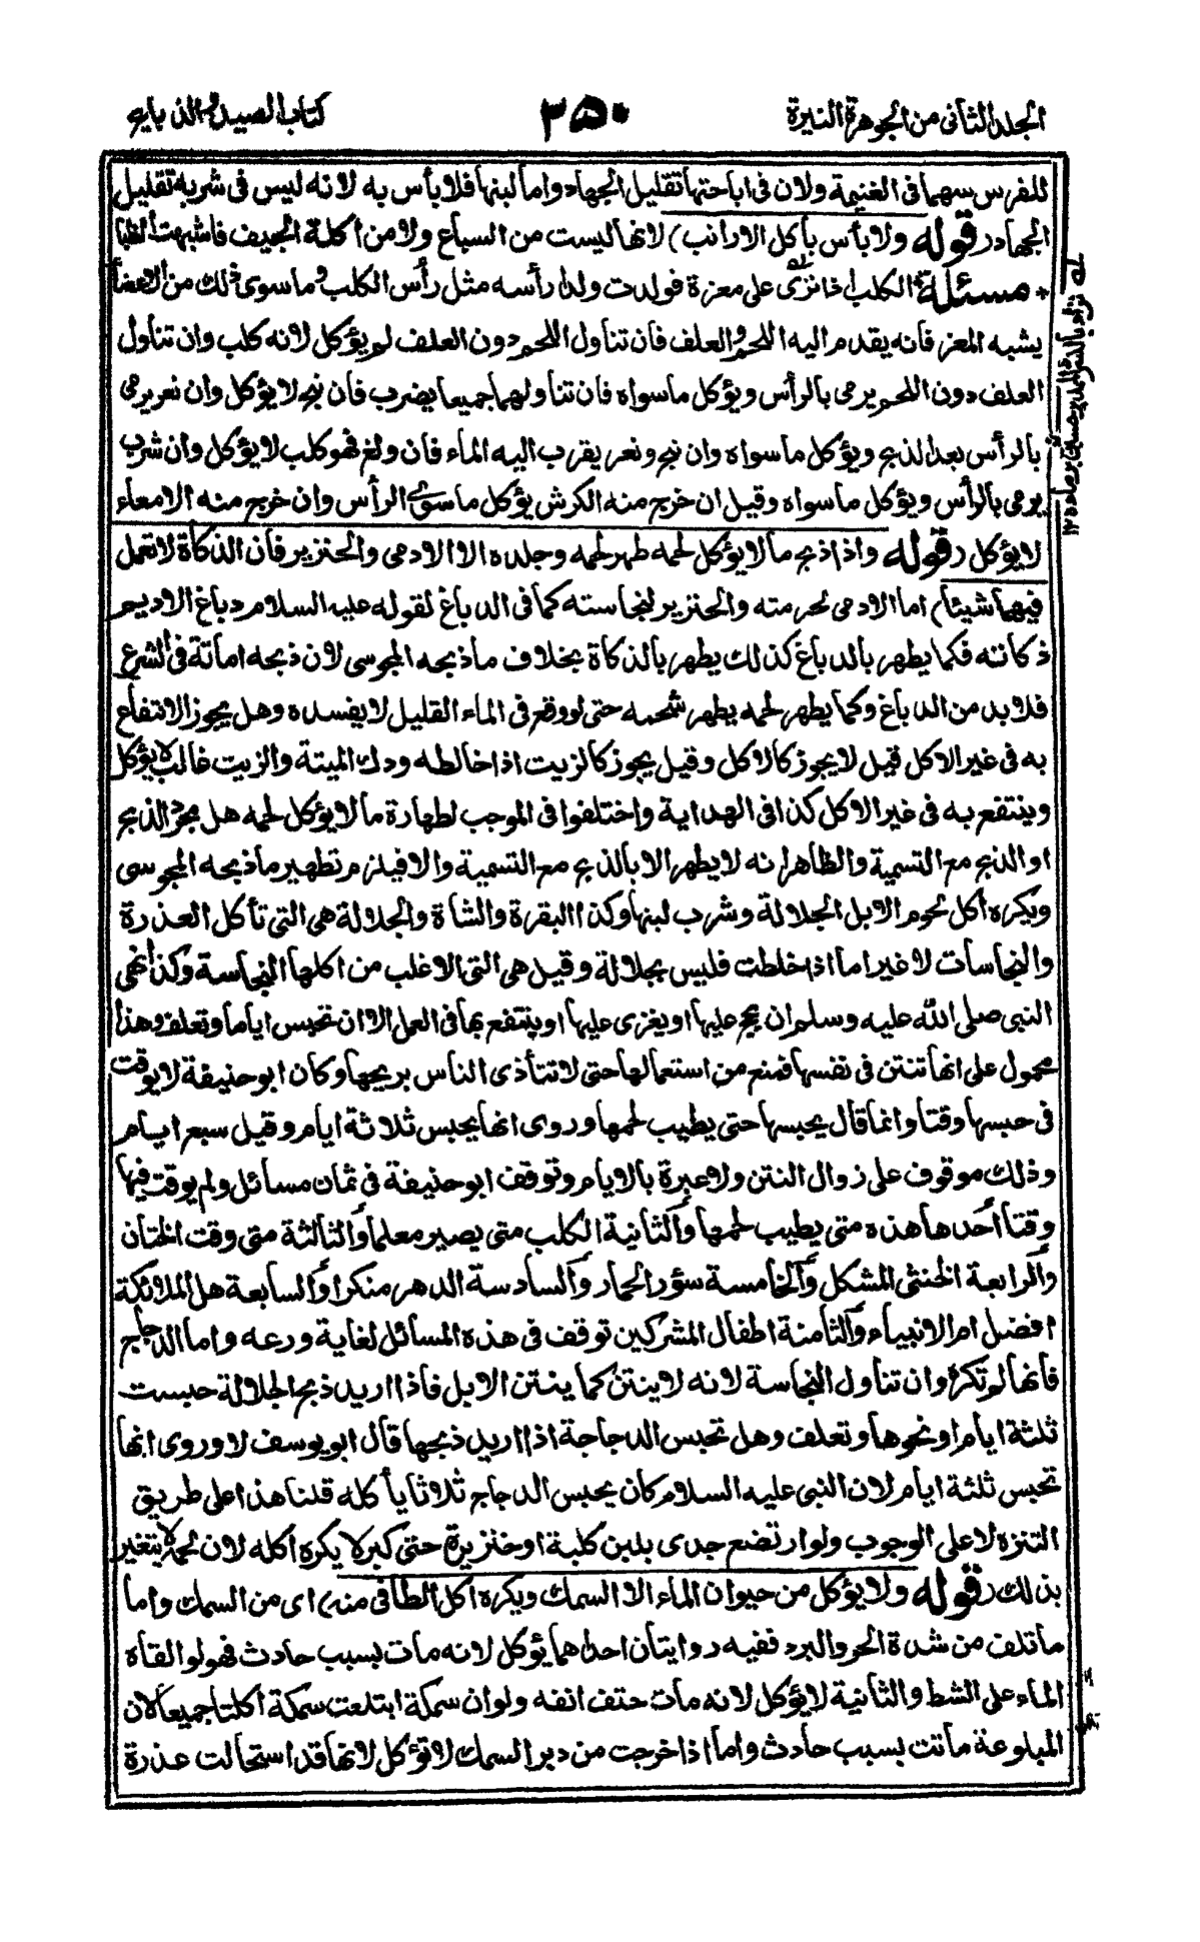 الجلد الثانى من الجوهرة النيرة
٢٥٠
كتاب الصيد والذبايح
للفرس سهما فى الغنيمة ولان فى اباحتها تقليل الجهاد واما لبنها فلا بأس به لانه ليس فى شربه تقليل
الجهاد (قوله ولا بأس بأكل الارانب) لانها ليست من السباع ولا من اكلة الجيف فاشبهت الظبا
* مسئلة الكلب اذا نزى على معزة فولدت ولدا رأسه مثل رأس الكلب وما سوى ذلك من الاعضأ
يشبه المعز فانه يقدم اليه اللحم والعلف فان تناول اللحم دون العلف لم يؤكل لانه كلب وان تناول
العلف دون اللحم يرمى بالرأس ويؤكل ما سواه فان تناولهما جميعا يضرب فان نبح لا يؤكل وان نعر يرمى
بالرأس بعد الذبح ويؤكل ما سواه وان نبح ونعر يقرب اليه الماء فان ولغ فهو كلب لا يؤكل وان شرب
يرمى بالرأس ويؤكل ما سواه وقيل ان خرج منه الكرش يؤكل ما سوى الرأس وان خرج منه الامعاء
لا يؤكل (قوله واذا ذبح ما لا يؤكل لحمه طهر لحمه وجلده الا الادمى والخنزير فان الذكاة لا تعمل
فيهما شيئا) اما الادمى لحرمته والخنزير لنجاسته كما فى الدباغ لقوله عليه السلام دباغ الاديم
ذكاته فكما يطهر بالدباغ كذلك يطهر بالذكاة بخلاف ما ذبحه المجوسى لان ذبحه اماتة فى الشرع
فلا بد من الدباغ وكما يطهر لحمه يطهر شحمه حتى لو وقع فى الماء القليل لا يفسده وهل يجوز الانتفاع
به فى غير الاكل قيل لا يجوز كالاكل وقيل يجوز كالزيت اذا خالطه ودك الميتة والزيت غالب لا يؤكل
وينتفع به فى غير الاكل كذا فى الهداية واختلفوا فى الموجب لطهارة ما لا يؤكل لحمه هل مجرد الذبح
او الذبح مع التسمية والظاهر انه لا يطهر الا بالذبح مع التسمية والا فيلزم تطهير ما ذبحه المجوسى
ويكره اكل لحوم الابل الجلالة وشرب لبنها وكذا البقرة والشاة والجلالة هى التى تأكل العذرة
والنجاسات لا غير اما اذا خلطت فليس بجلالة وقيل هى التى الاغلب من اكلها النجاسة وكذا نهى
النبى صلى الله عليه وسلم ان يحج عليها او يغزى عليها او ينتفع بها فى العمل الا ان تحبس اياما وتعلف وهذا
محمول على انها تنتن فى نفسها فمنع من استعمالها حتى لا تتأذى الناس بريحها وكان ابو حنيفة لا يوقت
فى حبسها وقتا وانما قال يحبسها حتى يطيب لحمها وروى انها يحبس ثلاثة ايام وقيل سبع ايام
وذلك موقوف على زوال النتن ولا عبرة بالايام وتوقف ابو حنيفة فى ثمان مسائل ولم يوقت فيها
وقتا أحدها هذه متى يطيب لحمها والثانية الكلب متى يصير معلما والثالثة متى وقت الختان
والرابعة الخنثى المشكل والخامسة سؤر الحمار والسادسة الدهر منكرا والسابعة هل الملائكة
افضل ام الانبياء والثامنة اطفال المشركين توقف فى هذه المسائل لغاية ورعه واما الدجاج
فانها لم تكره وان تناول النجاسة لانه لا ينتن كما ينتن الابل فاذا اريد ذبح الجلالة حبست
ثلثة ايام او نحوها وتعلف وهل تحبس الدجاجة اذا اريد ذبحها قال ابو يوسف لا وروى انها
تحبس ثلثة ايام لان النبى عليه السلام كان يحبس الدجاج ثلاثا يأكله قلنا هذا على طريق
التنزه لا على الوجوب ولو ارتضع جدى بلبن كلبة او خنزيرة حتى كبر لا يكره اكله لان لحمه لا يتغير
بذلك (قوله ولا يؤكل من حيوان الماء الا السمك ويكره اكل الطافى منه) اى من السمك واما
ما تلف من شدة الحر والبرد ففيه روايتان احداهما يؤكل لانه مات بسبب حادث فهو لو القاه
الماء على الشط والثانية لا يؤكل لانه مات حتف انفه ولو ان سمكة ابتلعت سمكة اكلتا جميعا لان
المبلوعة ماتت بسبب حادث واما اذا خرجت من دبر السمك لا تؤكل لانها قد استحالت عذرة